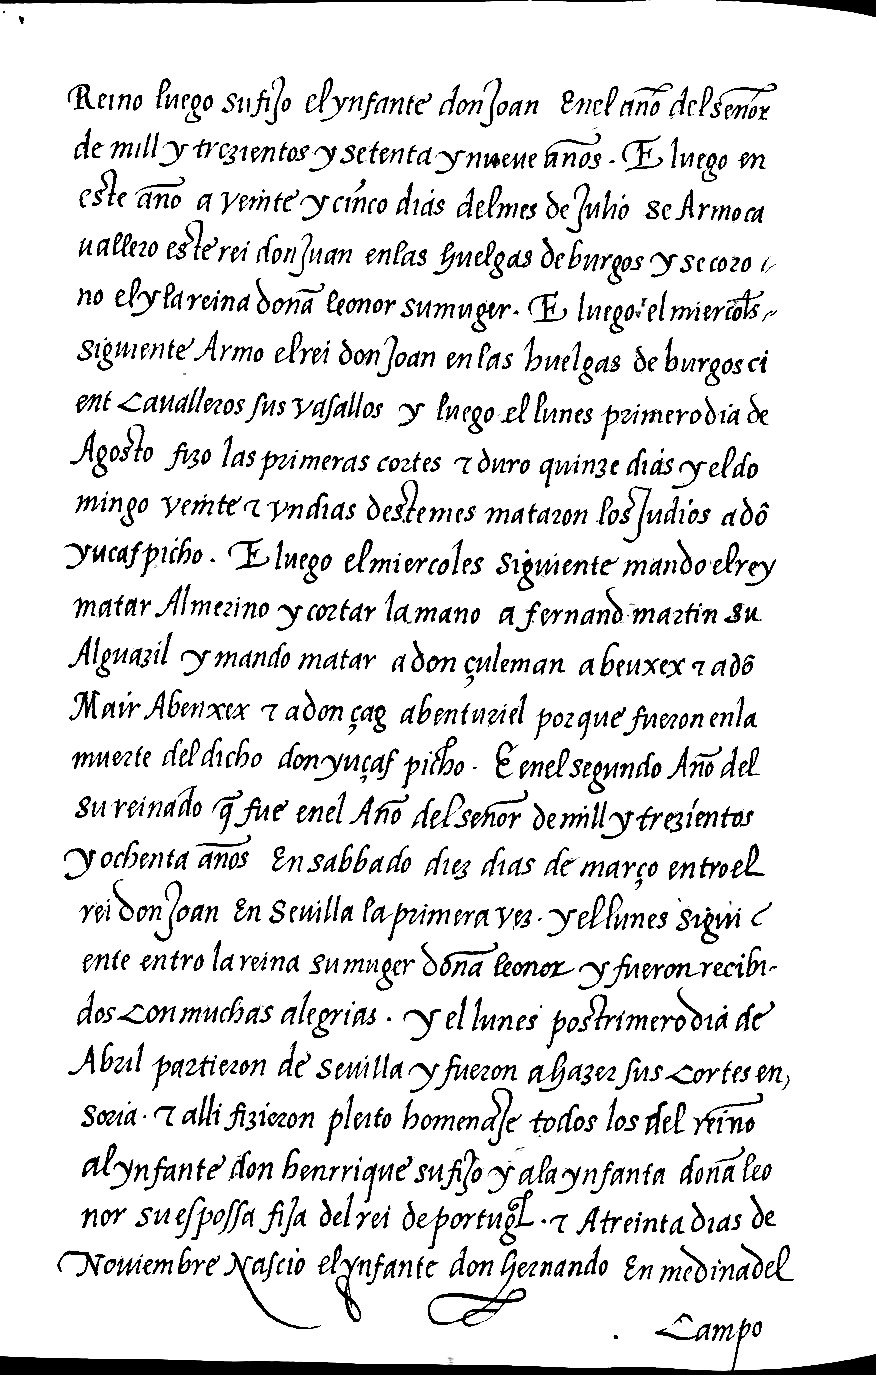 Reino luego su fijo el ynfante don Joan En el año del señor
de mill y trezientos y setenta y nueve años. E luego en
este año a veinte y cinco dias del mes de Julio se Armo ca
uallero este rei don Juan en las huelgas de burgos y se coro
no el y la reina doña leonor su muger. E luego el miercoles
siguiente Armo el rei don Joan en las huelgas de burgos ci
ent Cavalleros sus vasallos y luego el lunes primero dia de
Agosto fizo las primeras cortes τ duro quinze dias y el do
mingo veinte τ vn dias deste mes mataron los Judios a dõ
yucaf picho. E luego el miercoles siguiente mando el rey
matar Al merino y cortar la mano a fernand martin su
Alguazil y mando matar a don çuleman abeuxex τ a dõ
Mair Abenxex τ a don çag abenturiel porque fueron en la
muerte del dicho don yuçaf picho. E en el segundo Año del
su reinado q̃ fue en el Año del señor de mill y trezientos
y ochenta años En sabbado diez dias de março entro el
rei don Joan En Sevilla la primera vez. y el lunes sigui
ente entro la reina su muger doña leonor y fueron recibi-
dos con muchas alegrias. y el lunes postrimero dia de
Abril partieron de sevilla y fueron a hazer sus Cortes en
soria. τ alli fizieron pleito homenaje todos los del reino
al ynfante don henrrique su fijo y a la ynfanta doña leo
nor su espossa fija del rei de portugl. τ A treinta dias de
Noviembre Nascio el ynfante don Hernando En medina del
Campo